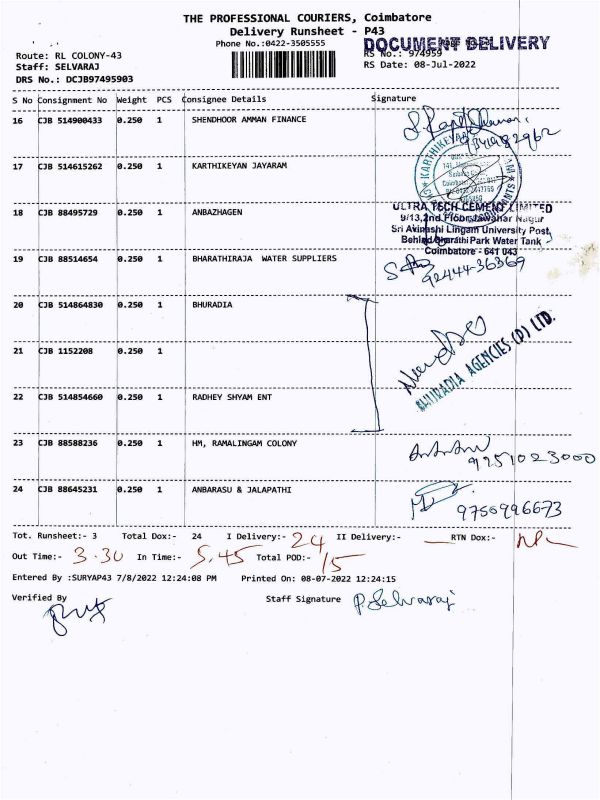 THE PROFESSIONAL COURIERS, Coimbatore
Delivery Runsheet - P43
Phone No.:0422-3505555
DOCUMENT DELIVERY
Route: RL COLONY-43
RS No.: 974959
Staff: SELVARAJ
RS Date: 08-Jul-2022
DRS No.: DCJB97495903
S No Consignment No Weight PCS Consignee Details Signature
16 CJB 514900433 0.250 1 SHENDHOOR AMMAN FINANCE
17 CJB 514615262 0.250 1 KARTHIKEYAN JAYARAM
18 CJB 88495729 0.250 1 ANBAZHAGEN
ULTRA TECH CEMENT LIMITED
9/13, 2nd Floor, Jawahar Nagar
Sri Avinashi Lingam University Post,
Behind Bharathi Park Water Tank
Coimbatore - 641 043
19 CJB 88514654 0.250 1 BHARATHIRAJA WATER SUPPLIERS
92444-36369
20 CJB 514864830 0.250 1 BHURADIA
BHURADIA AGENCIES (P) LTD.
21 CJB 1152208 0.250 1
22 CJB 514854660 0.250 1 RADHEY SHYAM ENT
23 CJB 88588236 0.250 1 HM, RAMALINGAM COLONY
9251023000
24 CJB 88645231 0.250 1 ANBARASU & JALAPATHI
9750996673
Tot. Runsheet:- 3 Total Dox:- 24 I Delivery:- 24 II Delivery:- — RTN Dox:-
Out Time:- 3.30 In Time:- 5.45 Total POD:- 15
Entered By :SURYAP43 7/8/2022 12:24:08 PM Printed On: 08-07-2022 12:24:15
Verified By
Staff Signature P. Selvaraj